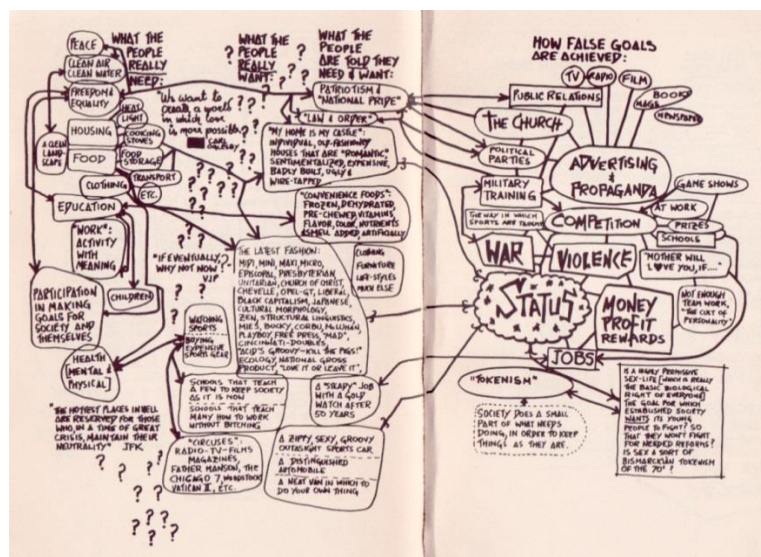 WHAT THE
PEOPLE
REALLY
NEED:
PEACE
CLEAN AIR
CLEAN WATER
FREEDOM &
EQUALITY
HOUSING
HEAT
LIGHT
COOKING
STOVES
FOOD
FOOD
STORAGE
A CLEAN
LAND-
SCAPE
TRANSPORT
ETC.
CLOTHING
EDUCATION
"WORK":
ACTIVITY
WITH
MEANING
PARTICIPATION
IN MAKING
GOALS FOR
SOCIETY AND
THEMSELVES
CHILDREN
HEALTH
[MENTAL &
PHYSICAL]
"THE HOTTEST PLACES IN HELL
ARE RESERVED FOR THOSE
WHO, IN A TIME OF GREAT
CRISIS, MAINTAIN THEIR
NEUTRALITY" JFK
"We want to
create a world
in which love
is more possible."
CARL
OGLESBY
"IF EVENTUALLY,
WHY NOT NOW?"
VJP
WHAT THE
PEOPLE
REALLY
WANT:
? ? ? ? ?
WHAT THE
PEOPLE
ARE TOLD THEY
NEED & WANT:
PATRIOTISM &
"NATIONAL PRIDE"
"LAW & ORDER"
"MY HOME IS MY CASTLE":
INDIVIDUAL, OLD-FASHIONY
HOUSES THAT ARE "ROMANTIC",
SENTIMENTALIZED, EXPENSIVE,
BADLY BUILT, UGLY &
WIRE-TAPPED
"CONVENIENCE FOODS":
FROZEN, DEHYDRATED,
PRE-CHEWED, VITAMINS,
FLAVOR, COLOR, NUTRIENTS
& SMELL ADDED ARTIFICIALLY
THE LATEST FASHION:
MIDI, MINI, MAXI, MICRO,
EPISCOPAL, PRESBYTERIAN,
UNITARIAN, CHURCH OF CHRIST,
CHEVELLE, OPEL-GT, LIBERAL,
BLACK CAPITALISM, JAPANESE,
CULTURAL MORPHOLOGY,
ZEN, STRUCTURAL LINGUISTICS,
MIES, BUCKY, CORBU, McLUHAN,
PLAYBOY, FREE PRESS, "MAD",
CINCINNATI-DOUBLES,
"ACID'S GROOVY-KILL THE PIGS!"
ECOLOGY, NATIONAL GROSS
PRODUCT, "LOVE IT OR LEAVE IT",
CLOTHING
FURNITURE
LIFE-STYLES
MUCH ELSE
WATCHING
SPORTS
BUYING
EXPENSIVE
SPORTS GEAR
SCHOOLS THAT TEACH
A FEW TO KEEP SOCIETY
AS IT IS NOW
SCHOOLS THAT TEACH
MANY HOW TO WORK
WITHOUT BITCHING
A "STEADY" JOB
WITH A GOLD
WATCH AFTER
50 YEARS
"CIRCUSES":
RADIO-TV-FILMS
MAGAZINES,
FATHER MANSON, THE
CHICAGO 7, WOODSTOCK
VATICAN II, ETC.
A ZIPPY, SEXY, GROOVY
OUTASIGHT SPORTS CAR
A DISTINGUISHED
AUTOMOBILE
A NEAT VAN IN WHICH TO
DO YOUR OWN THING
HOW FALSE GOALS
ARE ACHIEVED:
TV
RADIO
FILM
BOOKS
MAGS
NEWSPAPER
PUBLIC RELATIONS
THE CHURCH
POLITICAL
PARTIES
ADVERTISING
&
PROPAGANDA
MILITARY
TRAINING
THE WAY IN WHICH
SPORTS ARE TAUGHT
COMPETITION
GAME SHOWS
AT WORK
PRIZES
SCHOOLS
WAR
VIOLENCE
"MOTHER WILL
LOVE YOU, IF...."
STATUS
MONEY
PROFIT
REWARDS
NOT ENOUGH
TEAM WORK,
"THE CULT OF
PERSONALITY"
JOBS
"TOKENISM"
SOCIETY DOES A SMALL
PART OF WHAT NEEDS
DOING, IN ORDER TO KEEP
THINGS AS THEY ARE.
IS A HIGHLY PERMISSIVE
SEX-LIFE [WHICH IS REALLY
THE BASIC BIOLOGICAL
RIGHT OF EVERYONE]
THE GOAL FOR WHICH
ESTABLISHED SOCIETY
WANTS ITS YOUNG
PEOPLE TO FIGHT? SO
THAT THEY WON'T FIGHT
FOR NEEDED REFORMS?
IS SEX A SORT OF
BISMARCKIAN TOKENISM
OF THE 70'S?